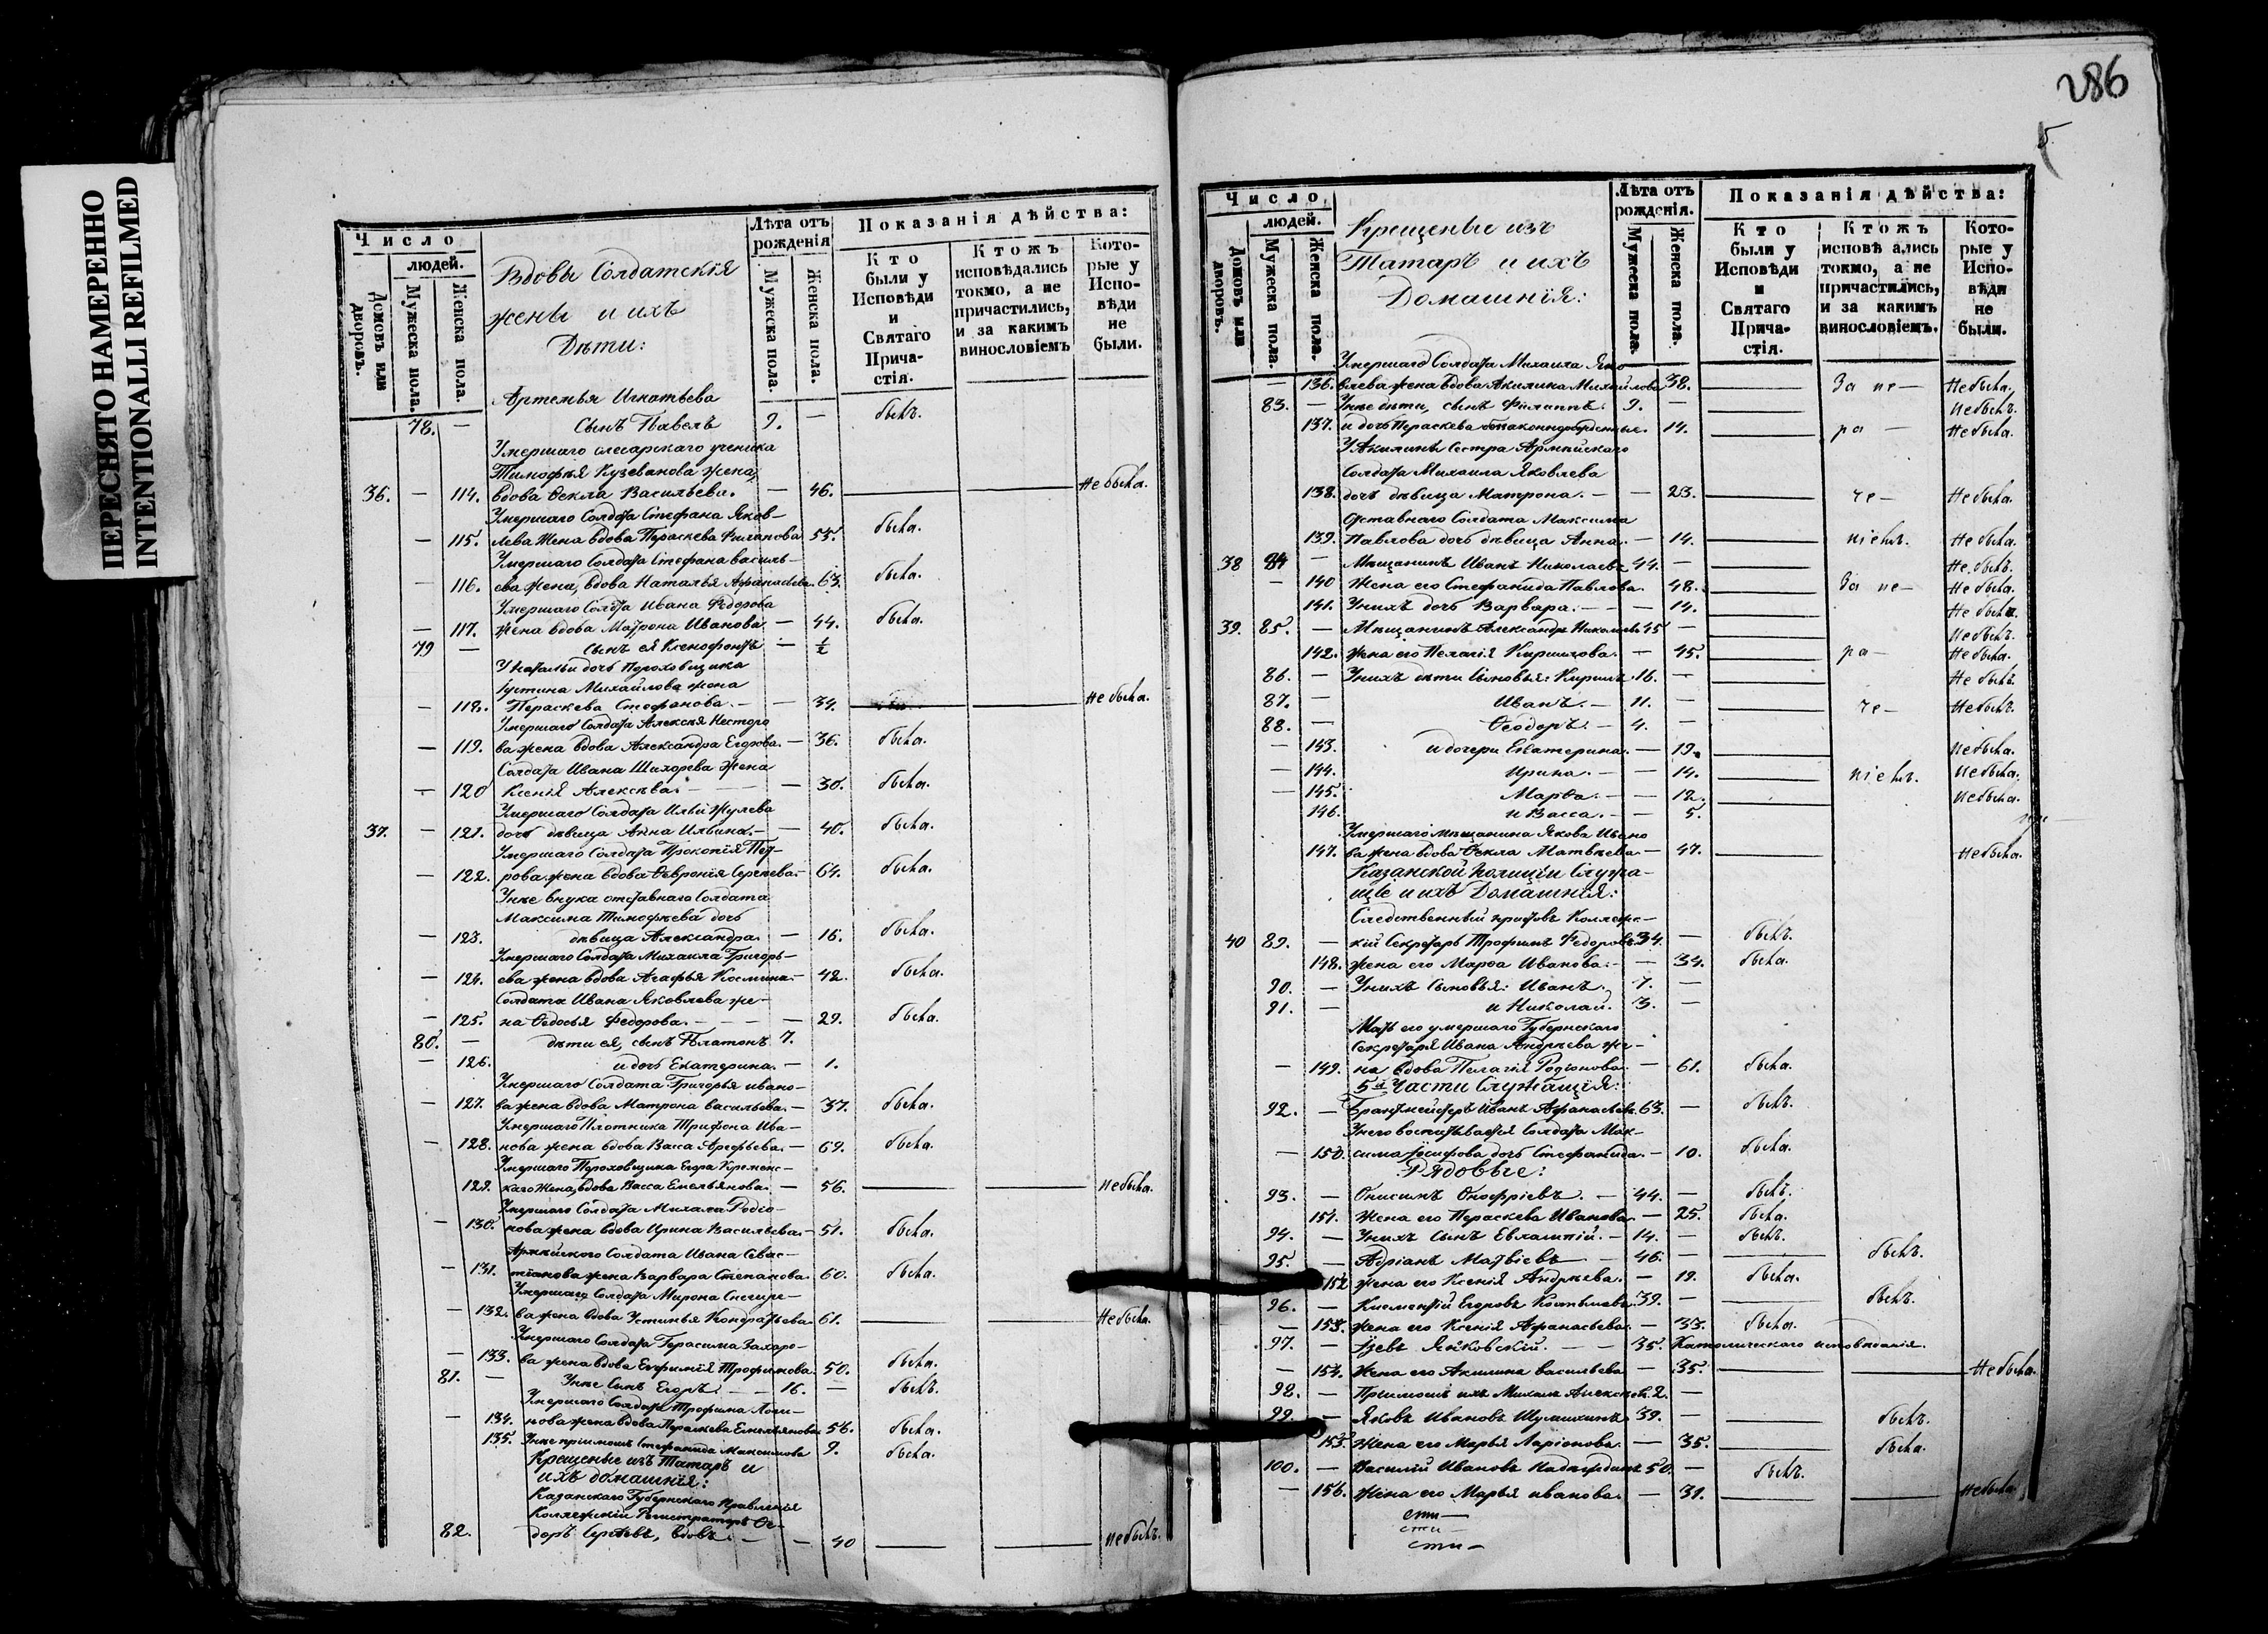 ПЕРЕСНЯТО НАМЕРЕННО
INTENTIONALLI REFILMED
Число
людей.
Домовъ или дворовъ.
Мужеска пола.
Женска пола.
Вдовы Солдатскія
жены и ихъ
Дѣти:
Лѣта отъ рожденія
Мужеска пола.
Женска пола.
Показанія дѣйства:
Кто были у Исповѣди и Святаго Прича-стія.
Ктожъ исповѣдались токмо, а не причастились, и за какимъ винословіемъ
Кото-рые у Испо-вѣди не были.
Артемья Игнатьева
78. — Сынъ Павелъ 9. — былъ.
Умершаго слесарскаго ученика
Тимофѣя Кузеванова жена,
36. — 114. вдова Ѳекла Васильева. — 46. Не была.
Умершаго Солдата Стефана Яков-
— 115. лева Жена вдова Параскева 55. была.
Умершаго Солдата Стефана Василь-
— 116. ева жена, вдова Наталья Афанасьева. 63. была.
Умершаго Солдата Ивана Федорова
— 117. жена вдова Матрона Иванова — 44. была.
79 — сынъ ея Ксенофонтъ — ½
У Натальи дочь Пороховщика
Іустина Михайлова жена
— 118. Пераскева Стефанова. — 34. Не была.
Умершаго Солдата Алексѣя Несторо
— 119. ва жена вдова Александра Егорова. — 36. была.
Солдата Ивана Шихорева Жена
— 120 Ксенія Алексѣва. — 30. была.
Умершаго Солдата Ильи Жулева
37. — 121. дочь дѣвица Анна Ильина. — 40. была.
Умершаго Солдата Прокопія Пет-
— 122. рова жена вдова Ѳевронія Сергѣева. 64. была.
Унее внука отставнаго Солдата
Максима Тимофѣева дочь
— 123. дѣвица Александра. — 16. была.
Умершаго Солдата Михаила Григорь-
— 124. ева жена вдова Агафья Космина. — 42. была.
Солдата Ивана Яковлева же-
— 125. на Ѳедосья Федорова. — 29. была.
80. — дѣти ея, сынъ Платонъ 7.
— 126. и дочь Екатерина. — 1.
Умершаго Солдата Григорья Ивано-
— 127. ва жена вдова Матрона Васильева. — 37. была.
Умершаго Плотника Трифона Ива-
— 128. нова жена вдова Васса Арефьева. — 69. была.
Умершаго Пороховщика Егора Кременс-
129. каго Жена, вдова Васса Емельянова. — 56. Не была.
Умершаго Солдата Михаила Родіо-
— 130. нова жена вдова Ирина Васильева. — 51. была.
Армейскаго Солдата Ивана Севас-
— 131. тіанова жена Варвара Степанова. 60. была.
Умершаго Солдата Мирона Снегире-
— 132. ва жена вдова Устинья Кондратьева. 61. Не была.
Умершаго Солдата Герасима Захаро-
— 133. ва жена вдова Евфимія Трофимова. 50. была.
81. — Унее Сынъ Егоръ. — 16. — былъ.
Умершаго Солдата Трофима Логи-
— 134. нова жена вдова Параскева Емельянова 56. была.
135. Унее пріемышъ Стефанида Максимова 9. была.
Крещеные изъ Татаръ и
ихъ домашнія:
Казанскаго Губернскаго Правленія
Коллежскій Регистраторъ Ѳе-
82. доръ Сергѣевъ, вдовъ. — — 40 Не былъ.
286
5
Число
людей.
Домовъ или дворовъ.
Мужеска пола
Женска пола.
Крещеные изъ
Татаръ и ихъ
Домашнія:
Лѣта отъ рожденія.
Мужеска пола.
Женска пола.
Показанія дѣйства:
Кто были у Исповѣди и Святаго Прича-стія.
Ктожъ исповѣ ались токмо, а не причастились, и за какимъ винословіемъ.
Кото-рые у Испо-вѣди не были.
Умершаго Солдата Михаила Яко
— 136. влева жена вдова Акилина Михайлова 38. За не— Не была.
83. — Унее дѣти, сынъ Филиппъ. 9. — Не былъ.
137. и дочь Параскева 14. ра — Не была.
У Акилины Сестра Армейскаго
Солдата Михаила Яковлева
138. дочь дѣвица Матрона. — — 23. че— Не была.
Отставнаго Солдата Максима
139. Павлова дочь дѣвица Анна. — 14. ніемъ. Не была.
38 84 — Мѣщанинъ Иванъ Николаевъ 44. — Не былъ.
— 140 Жена его Стефанида Павлова. 48. За не— Не была.
141. Унихъ дочь Варвара. — — 14. Не была.
39. 85. — Мѣщанинъ Александръ Николаевъ 45 — Не былъ.
142. Жена его Пелагія Кирилова. — 45. ра— Не была.
86. — Унихъ дѣти Сыновья: Кирилъ 16. — Не былъ.
87. — Иванъ. — 11. — че— Не былъ.
88. — Ѳеодоръ. — 4. —
— 143. и дочери Екатерина. — 19. Не была.
— 144. Ирина. — — 14. ніемъ. Не была.
— 145. Марѳа. — — 12. Не была.
146. и Васса. — — 5.
Умершаго мѣщанина Якова Ивано
147. ва жена вдова Ѳекла Матвѣева. — 47. Не была.
Казанской Полиціи Служа-
щіе и ихъ Домашнія:
Слѣдственный приставъ Коллежс-
40 89. — кій Секретарь Трофимъ Федоровъ. 34. — былъ.
148. жена его Марѳа Иванова. — — 34. была.
90. — Унихъ Сыновья: Иванъ, 7. —
91. — и Николай. 3. —
Мать его умершаго Губернскаго
Секретаря Ивана Андреева же-
— 149. на вдова Пелагія Родіонова. — 61. была.
5й Части Служащія:
92. — Брантмейстеръ Иванъ Афанасьевъ. 63. — былъ.
Унего воспитывается Солдата Мак-
— 150. сима Іосифова дочь Стефанида. — 10. была.
Рядовые:
93. — Онисимъ Онофріевъ. — 44. — былъ.
151. Жена его Пераскева Иванова. — 25. была.
94. — Унихъ Сынъ Евлампій. — 14. — былъ.
95. — Адріанъ Матвіевъ — 46. — былъ.
152 жена его Ксенія Андреева. — 19. была.
96. — Климентій Егоровъ 39. — былъ.
— 153. Жена его Ксенія Афанасьева. — 33. была.
97. — Янковскій. — — 35. Католическаго исповѣданія.
— 154. Жена его Акилина Васильева — 35. Не была.
98. — Пріемышъ ихъ Михаилъ Алексѣевъ. 2. —
99. — Яковъ Ивановъ Шумихинъ. 39. — былъ.
155. Жена его Марья Ларіонова. — 35. была.
100. — Василій Ивановъ 50. — былъ.
— 156. Жена его Марья Иванова. — 31. Не была.
сти—
сти—
сти—